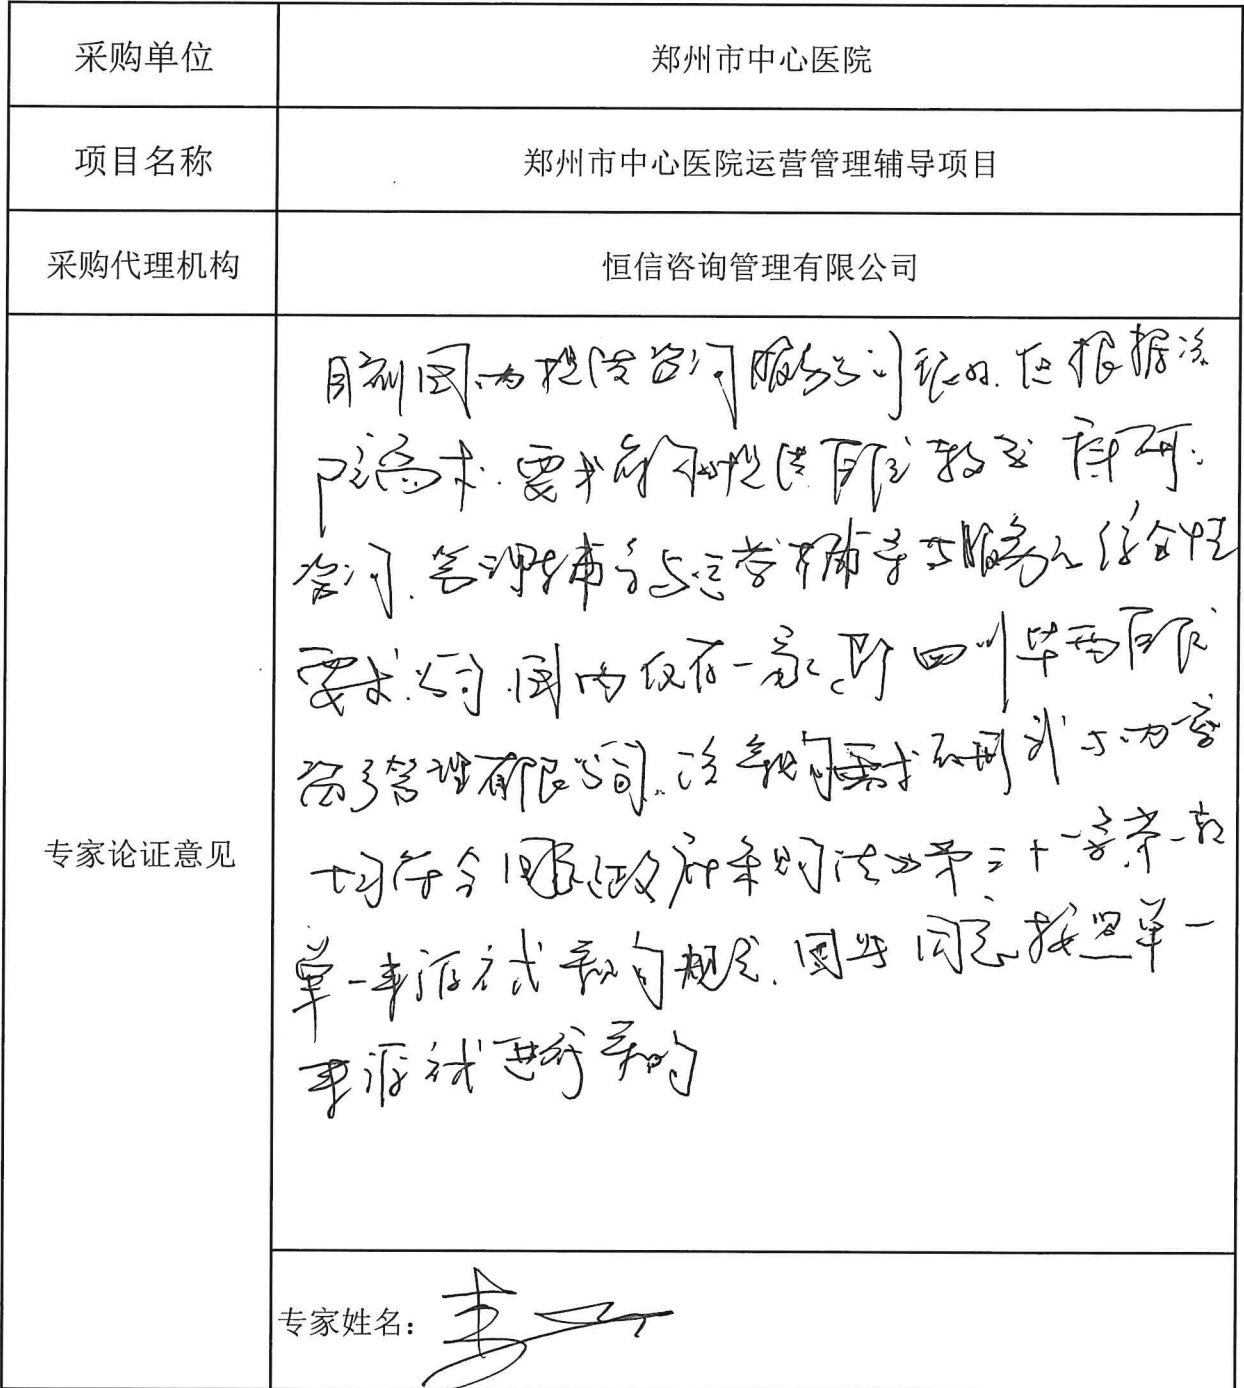 采购单位 郑州市中心医院
项目名称 郑州市中心医院运营管理辅导项目
采购代理机构 恒信咨询管理有限公司
专家论证意见
目前国内提供咨询服务公司很多，但根据该
院需求，要求供提供医院教育、科研、
咨询、管理辅导与运营辅导等服务的综合性
要求公司，国内仅有一家，即四川华西医院
管理有限公司，该采购需求与内容
均符合国家政府采购法第三十一条第一款
单一来源方式采购规定，同意按照单一
来源方式进行采购
专家姓名：